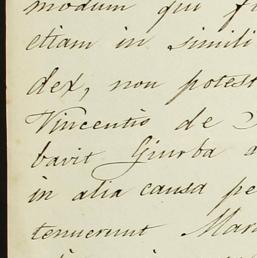 modum qui
etiam in simili
dex, non potest
Vincentis de
bavit Giurba
in alia causa
tenuerunt